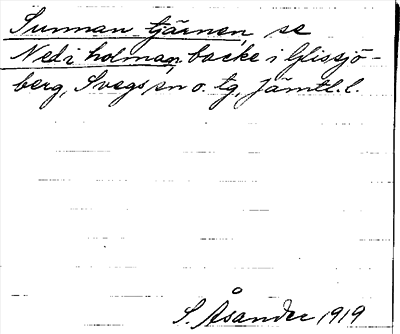 Sunnan tjärnen, se
Ned i holman, backe i Glissjö-
berg, Svegs sn o. tg, Jämtl. l.
S. Åsander 1919